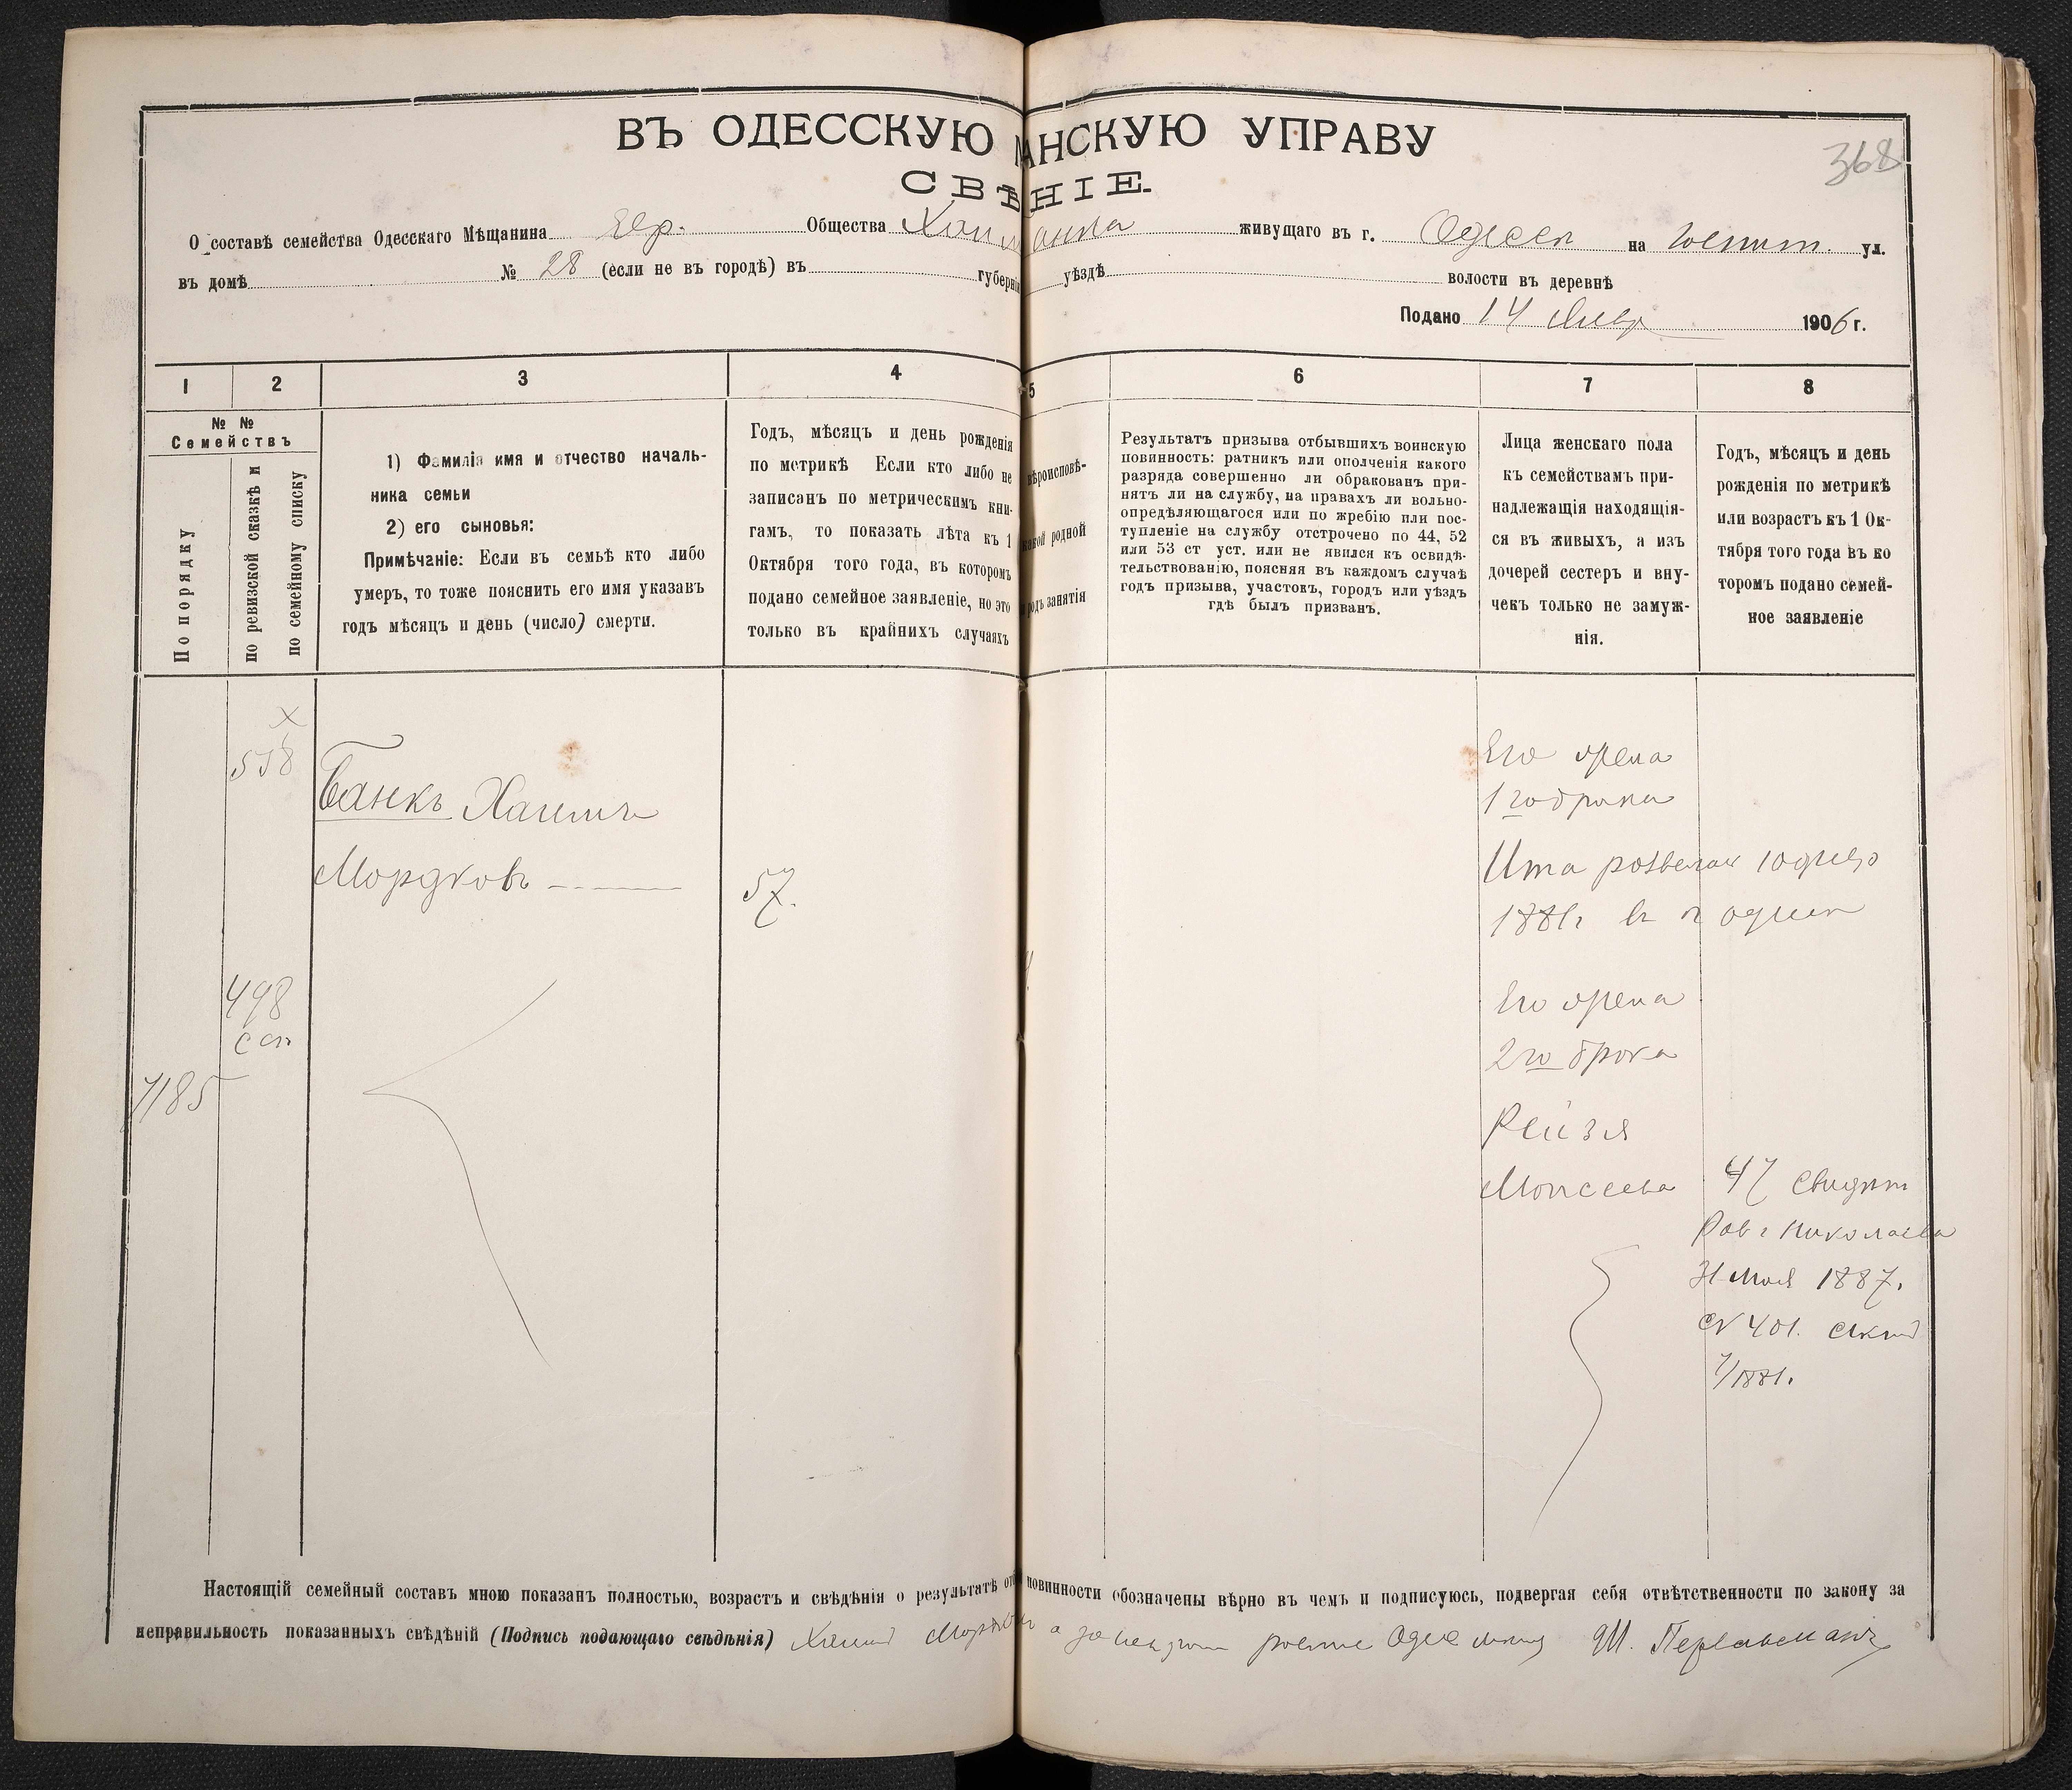 ВЪ ОДЕССКУЮ АНСКУЮ УПРАВУ
368
СВѢНІЕ.
О составѣ семейства Одесскаго Мѣщанина Евр. Общества живущаго въ г. Одессѣ на ул.
въ домѣ № 28 (если не въ городѣ) въ губерніи уѣздѣ волости въ деревнѣ
Подано 14 Янвр 1906 г.
1 2 3 4 5 6 7 8
№ №
Семействъ
По порядку
по ревизской сказкѣ и
по семейному списку
1) Фамилія имя и отчество началь-
ника семьи
2) его сыновья:
Примѣчаніе: Если въ семьѣ кто либо
умеръ, то тоже пояснить его имя указавъ
годъ мѣсяцъ и день (число) смерти.
Годъ, мѣсяцъ и день рожденія
по метрикѣ Если кто либо не
записанъ по метрическимъ кни-
гамъ, то показать лѣта къ 1
Октября того года, въ которомъ
подано семейное заявленіе, но это
только въ крайнихъ случаяхъ
вѣроисповѣ-
какой родной
родъ занятія
Результатъ призыва отбывшихъ воинскую
повинность: ратникъ или ополченія какого
разряда совершенно ли обракованъ при-
нятъ ли на службу, на правахъ ли вольно-
опредѣляющагося или по жребію или пос-
тупленіе на службу отстрочено по 44, 52
или 53 ст уст. или не явился къ освидѣ-
тельствованію, поясняя въ каждомъ случаѣ
годъ призыва, участокъ, городъ или уѣздъ
гдѣ былъ призванъ.
Лица женскаго пола
къ семействамъ при-
надлежащія находящія-
ся въ живыхъ, а изъ
дочерей сестеръ и вну-
чекъ только не замуж-
нія.
Годъ, мѣсяцъ и день
рожденія по метрикѣ
или возрастъ къ 1 Ок-
тября того года въ ко
торомъ подано семей-
ное заявленіе
538
Банкъ Хаимъ
Мордковъ
57.
498
сп
7185
Его жена
1 го брака
Ита
1881г
Его жена
2го брака
Рейзя
Моисеева
47 свидѣт
Рав г Николаева
31 Мая 1887.
№ 401.
1881.
Настоящій семейный составъ мною показанъ полностью, возрастъ и свѣдѣнія о результатѣ от повинности обозначены вѣрно въ чемъ и подписуюсь, подвергая себя отвѣтственности по закону за
неправильность показанныхъ свѣдѣній (Подпись подающаго свѣдѣнія) Хаимъ